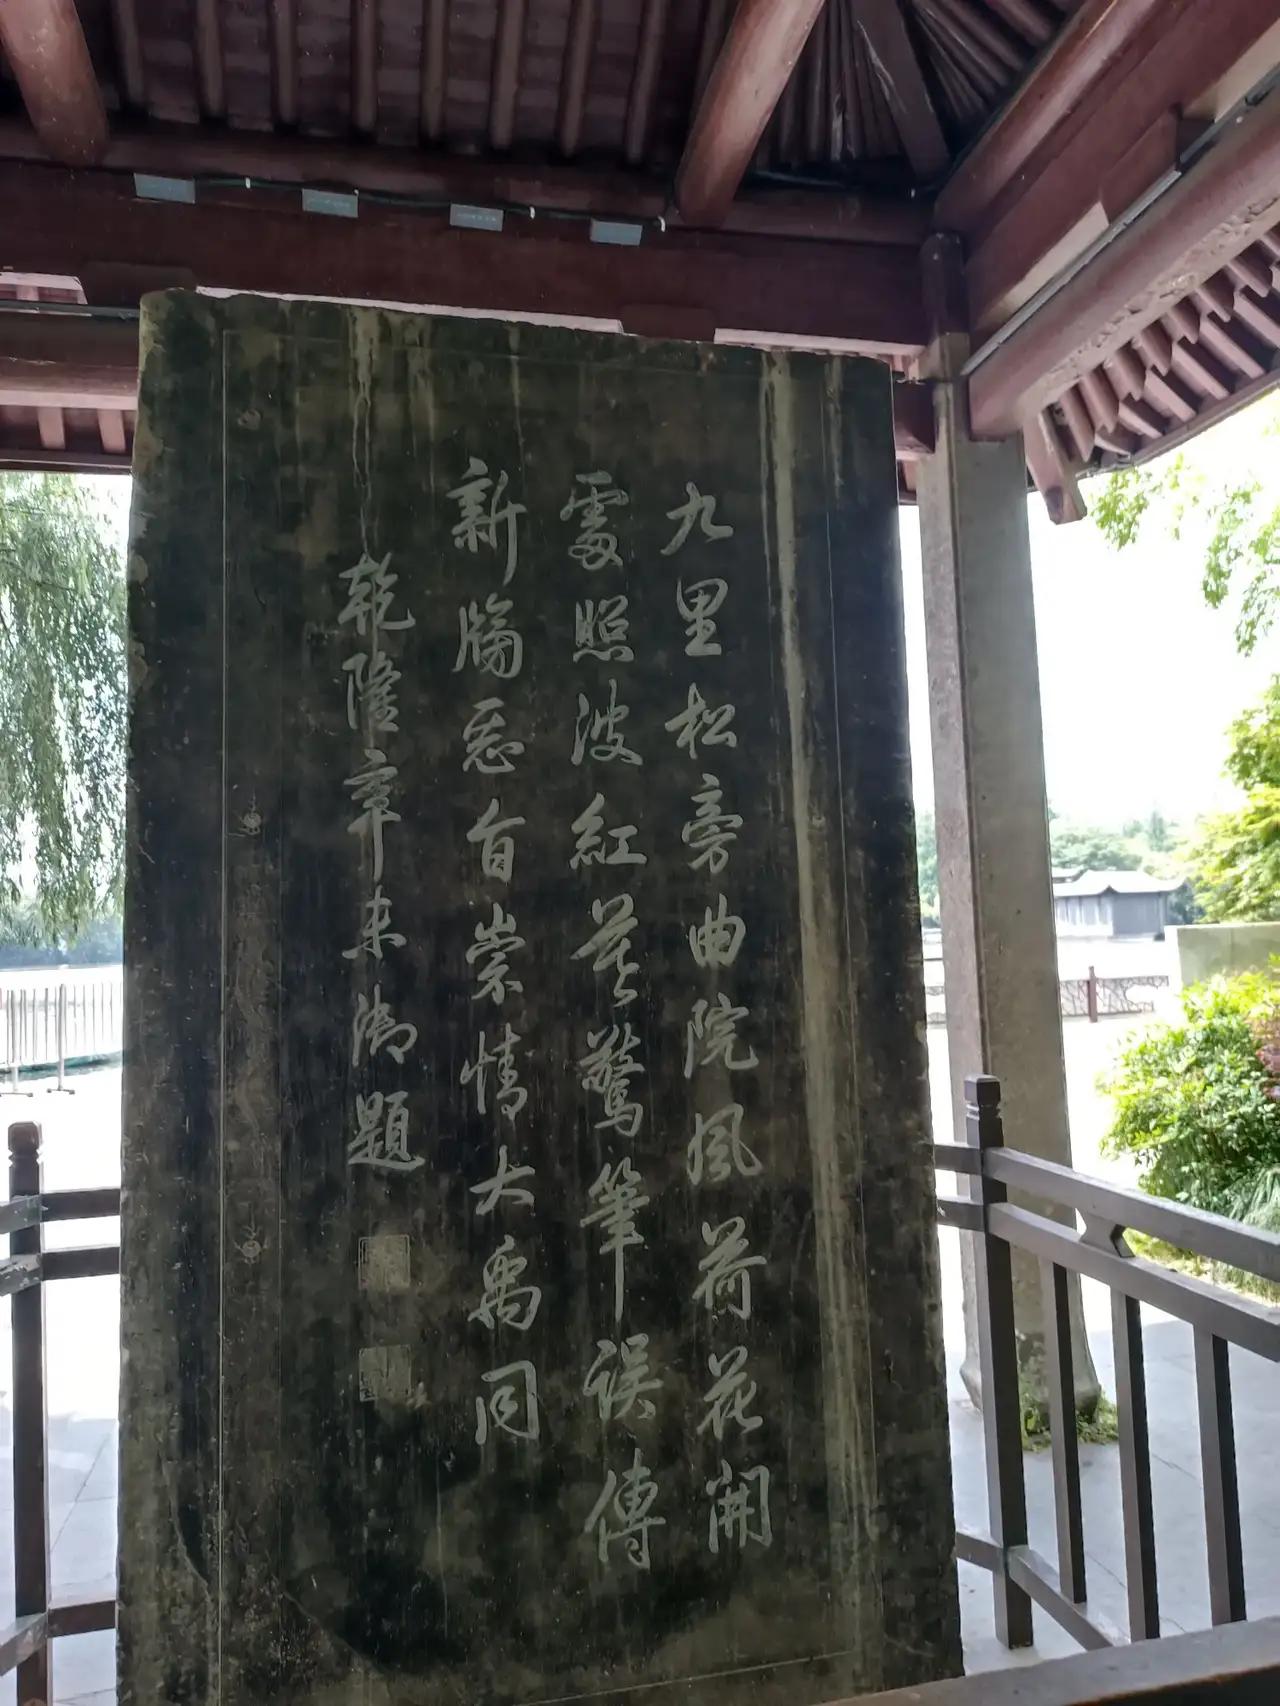 九里松旁曲院風荷花開
處照波紅莫驚筆誤傳
新牓惡旨崇情大禹同
乾隆辛未御題